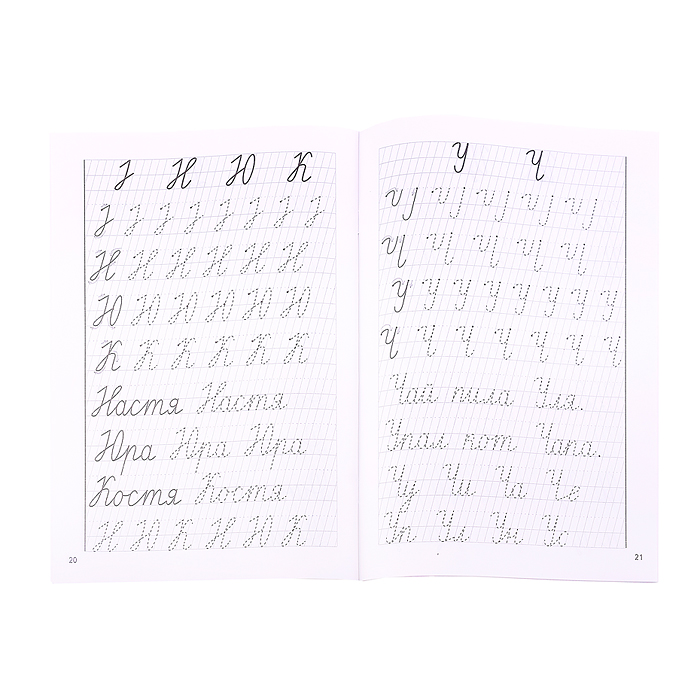 Н Ю К
Н Н Н Н Н Н
Ю Ю Ю Ю Ю Ю
К К К К К К
Настя Настя
Юра Юра Юра
Костя Костя
Н Ю К Н Ю К
20
У Ч
У У У У У У У У
Ч Ч Ч Ч Ч Ч Ч
Чай пила Уля.
Упал кот Чапа.
Чи Ча Че
Уп Ул Ун Ус
21